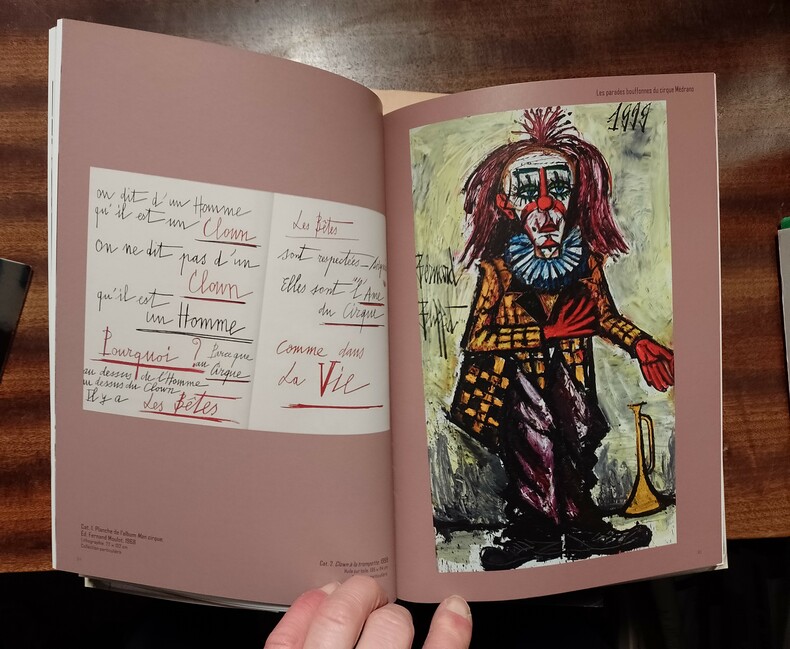 on dit d'un Homme
qu'il est un Clown
on ne dit pas d'un
Clown
qu'il est
un Homme
Pourquoi ? Parceque
au Cirque
au dessus de l'Homme
au dessus du Clown
Il y a Les Bêtes
Les Bêtes
sont respectées
Elles sont "l'Ame
du Cirque
comme dans
La Vie
Cat. 1. Planche de l'album Mon cirque,
Ed. Fernand Mourlot, 1968
Lithographie
Collection particulière
Cat. 7. Clown à la trompette, 1999
Huile sur toile
Les parades bouffonnes du cirque Médrano
1999
Bernard
Buffet